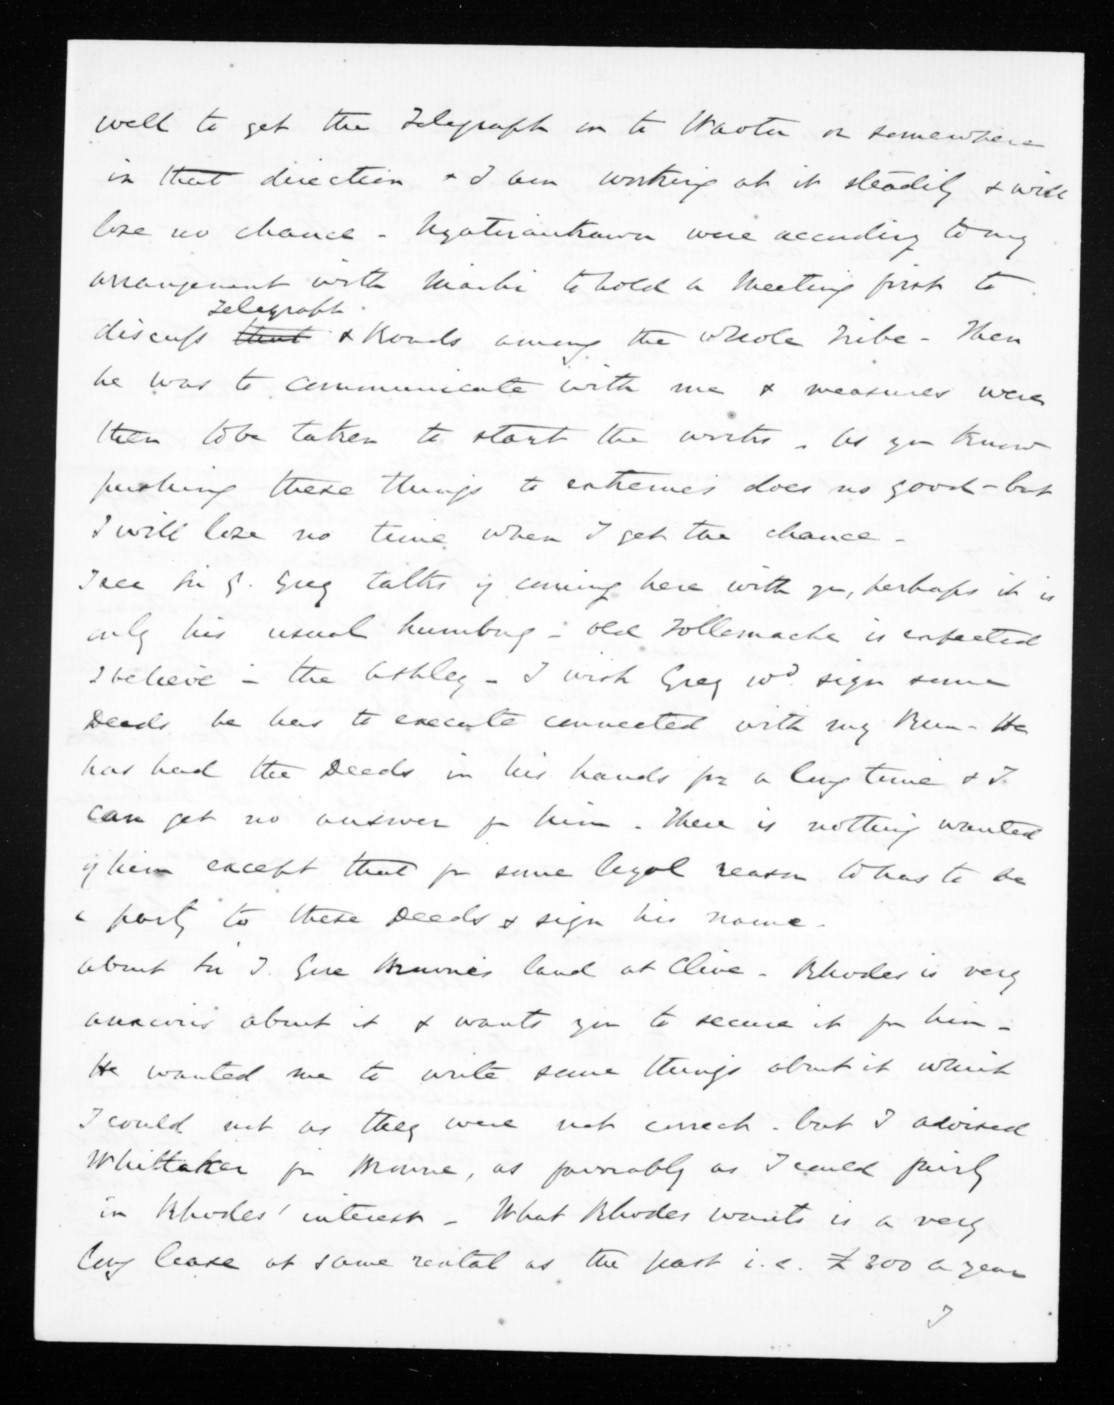 well to get the Telegraph on to Waotu or somewhere
in that direction & I am working at it steadily & will
lose no chance - Ngatiraukawa were according to my
arrangement with Maihi to hold a Meeting first to
Telegraph
discuss that & Roads among the whole Tribe - Then
he was to communicate with me & measures were
then to be taken to start the works - As you know
pushing these things to extremes does no good - but
I will lose no time when I get the chance -
I see Sir G. Grey talks of coming here with you, perhaps it is
only his usual humbug - old Tollemache is expected
I believe - the Ashley - I wish Grey wd. sign some
Deeds he has to execute connected with my Run - He
has had the Deeds in his hands for a long time & I
can get no answer fm him - There is nothing wanted
of him except that for some legal reason to has to be
a party to these Deeds & sign his name -
about Sir T. Gore Browne's land at Clive - Rhodes is very
anxious about it & wants you to secure it for him -
He wanted me to write some things about it which
I could not as they were not correct - but I advised
Whittaker for Browne, as favorably as I could fairly
in Rhodes' interest - What Rhodes wants is a very
long lease at same rental as the past i.e. £300 a year
I